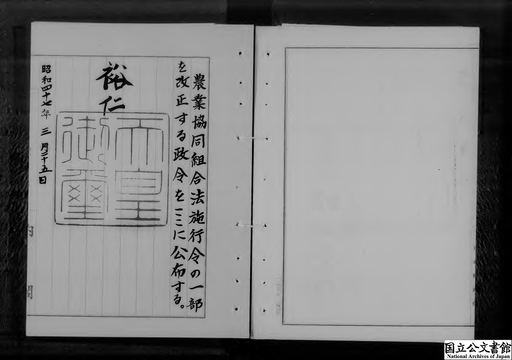 農業協同組合法施行令の一部
を改正する政令をここに公布する。
裕仁
天皇
御璽
昭和四十七年三月二十五日
内閣
国立公文書館
National Archives of Japan